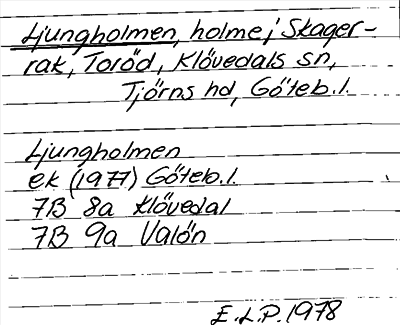 Ljungholmen, holme i Skager-
rak, Toröd, Klövedals sn,
Tjörns hd, Göteb.l.
Ljungholmen
ek (1977) Göteb.l.
7B 8a Klövedal
7B 9a Valön
E.L.P. 1978